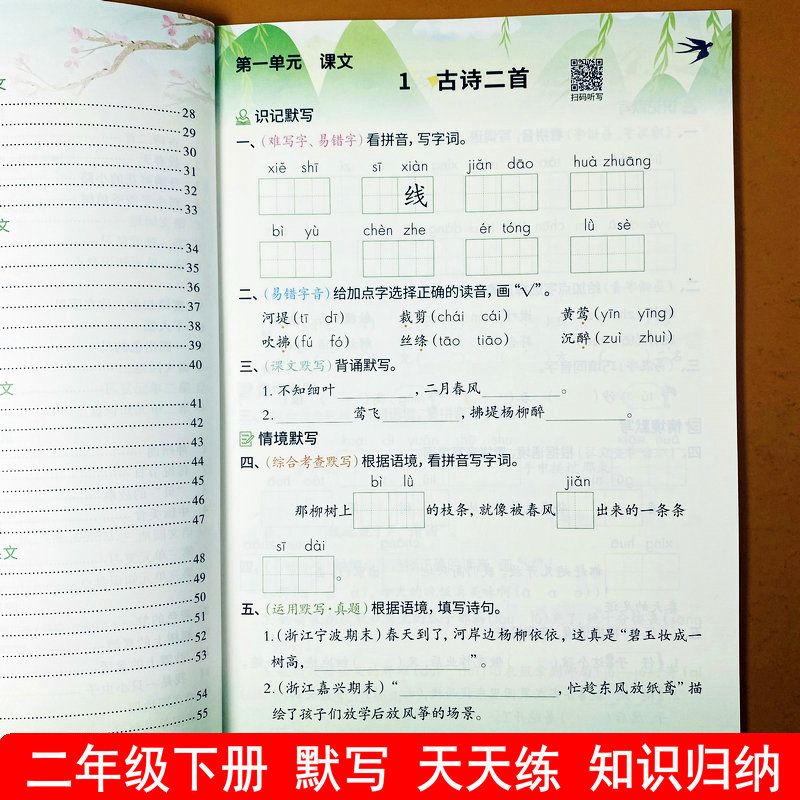 文
28
29
30
31
32
33
文
34
35
36
37
38
39
40
文
41
42
43
44
45
46
47
文
48
49
50
51
52
53
54
55
第一单元 课文
1 古诗二首
扫码听写
识记默写
一、(难写字、易错字)看拼音,写字词。
xiě shī sī xiàn jiǎn dāo huà zhuāng
线
bì yù chèn zhe ér tóng lǜ sè
二、(易错字音)给加点字选择正确的读音,画“√”。
河堤(tī dī) 裁剪(chái cái) 黄莺(yīn yīng)
吹拂(fú fó) 丝绦(tāo tiāo) 沉醉(zuì zhuì)
三、(课文默写)背诵默写。
1. 不知细叶________,二月春风________。
2. ________莺飞________,拂堤杨柳醉________。
情境默写
四、(综合考查默写)根据语境,看拼音写字词。
bì lǜ jiǎn
那柳树上 的枝条,就像被春风 出来的一条条
sī dài
。
五、(运用默写·真题)根据语境,填写诗句。
1.(浙江宁波期末)春天到了,河岸边杨柳依依,这真是“碧玉妆成一
树高,________________”。
2.(浙江嘉兴期末)“________________,忙趁东风放纸鸢”描
绘了孩子们放学后放风筝的场景。
二年级下册 默写 天天练 知识归纳